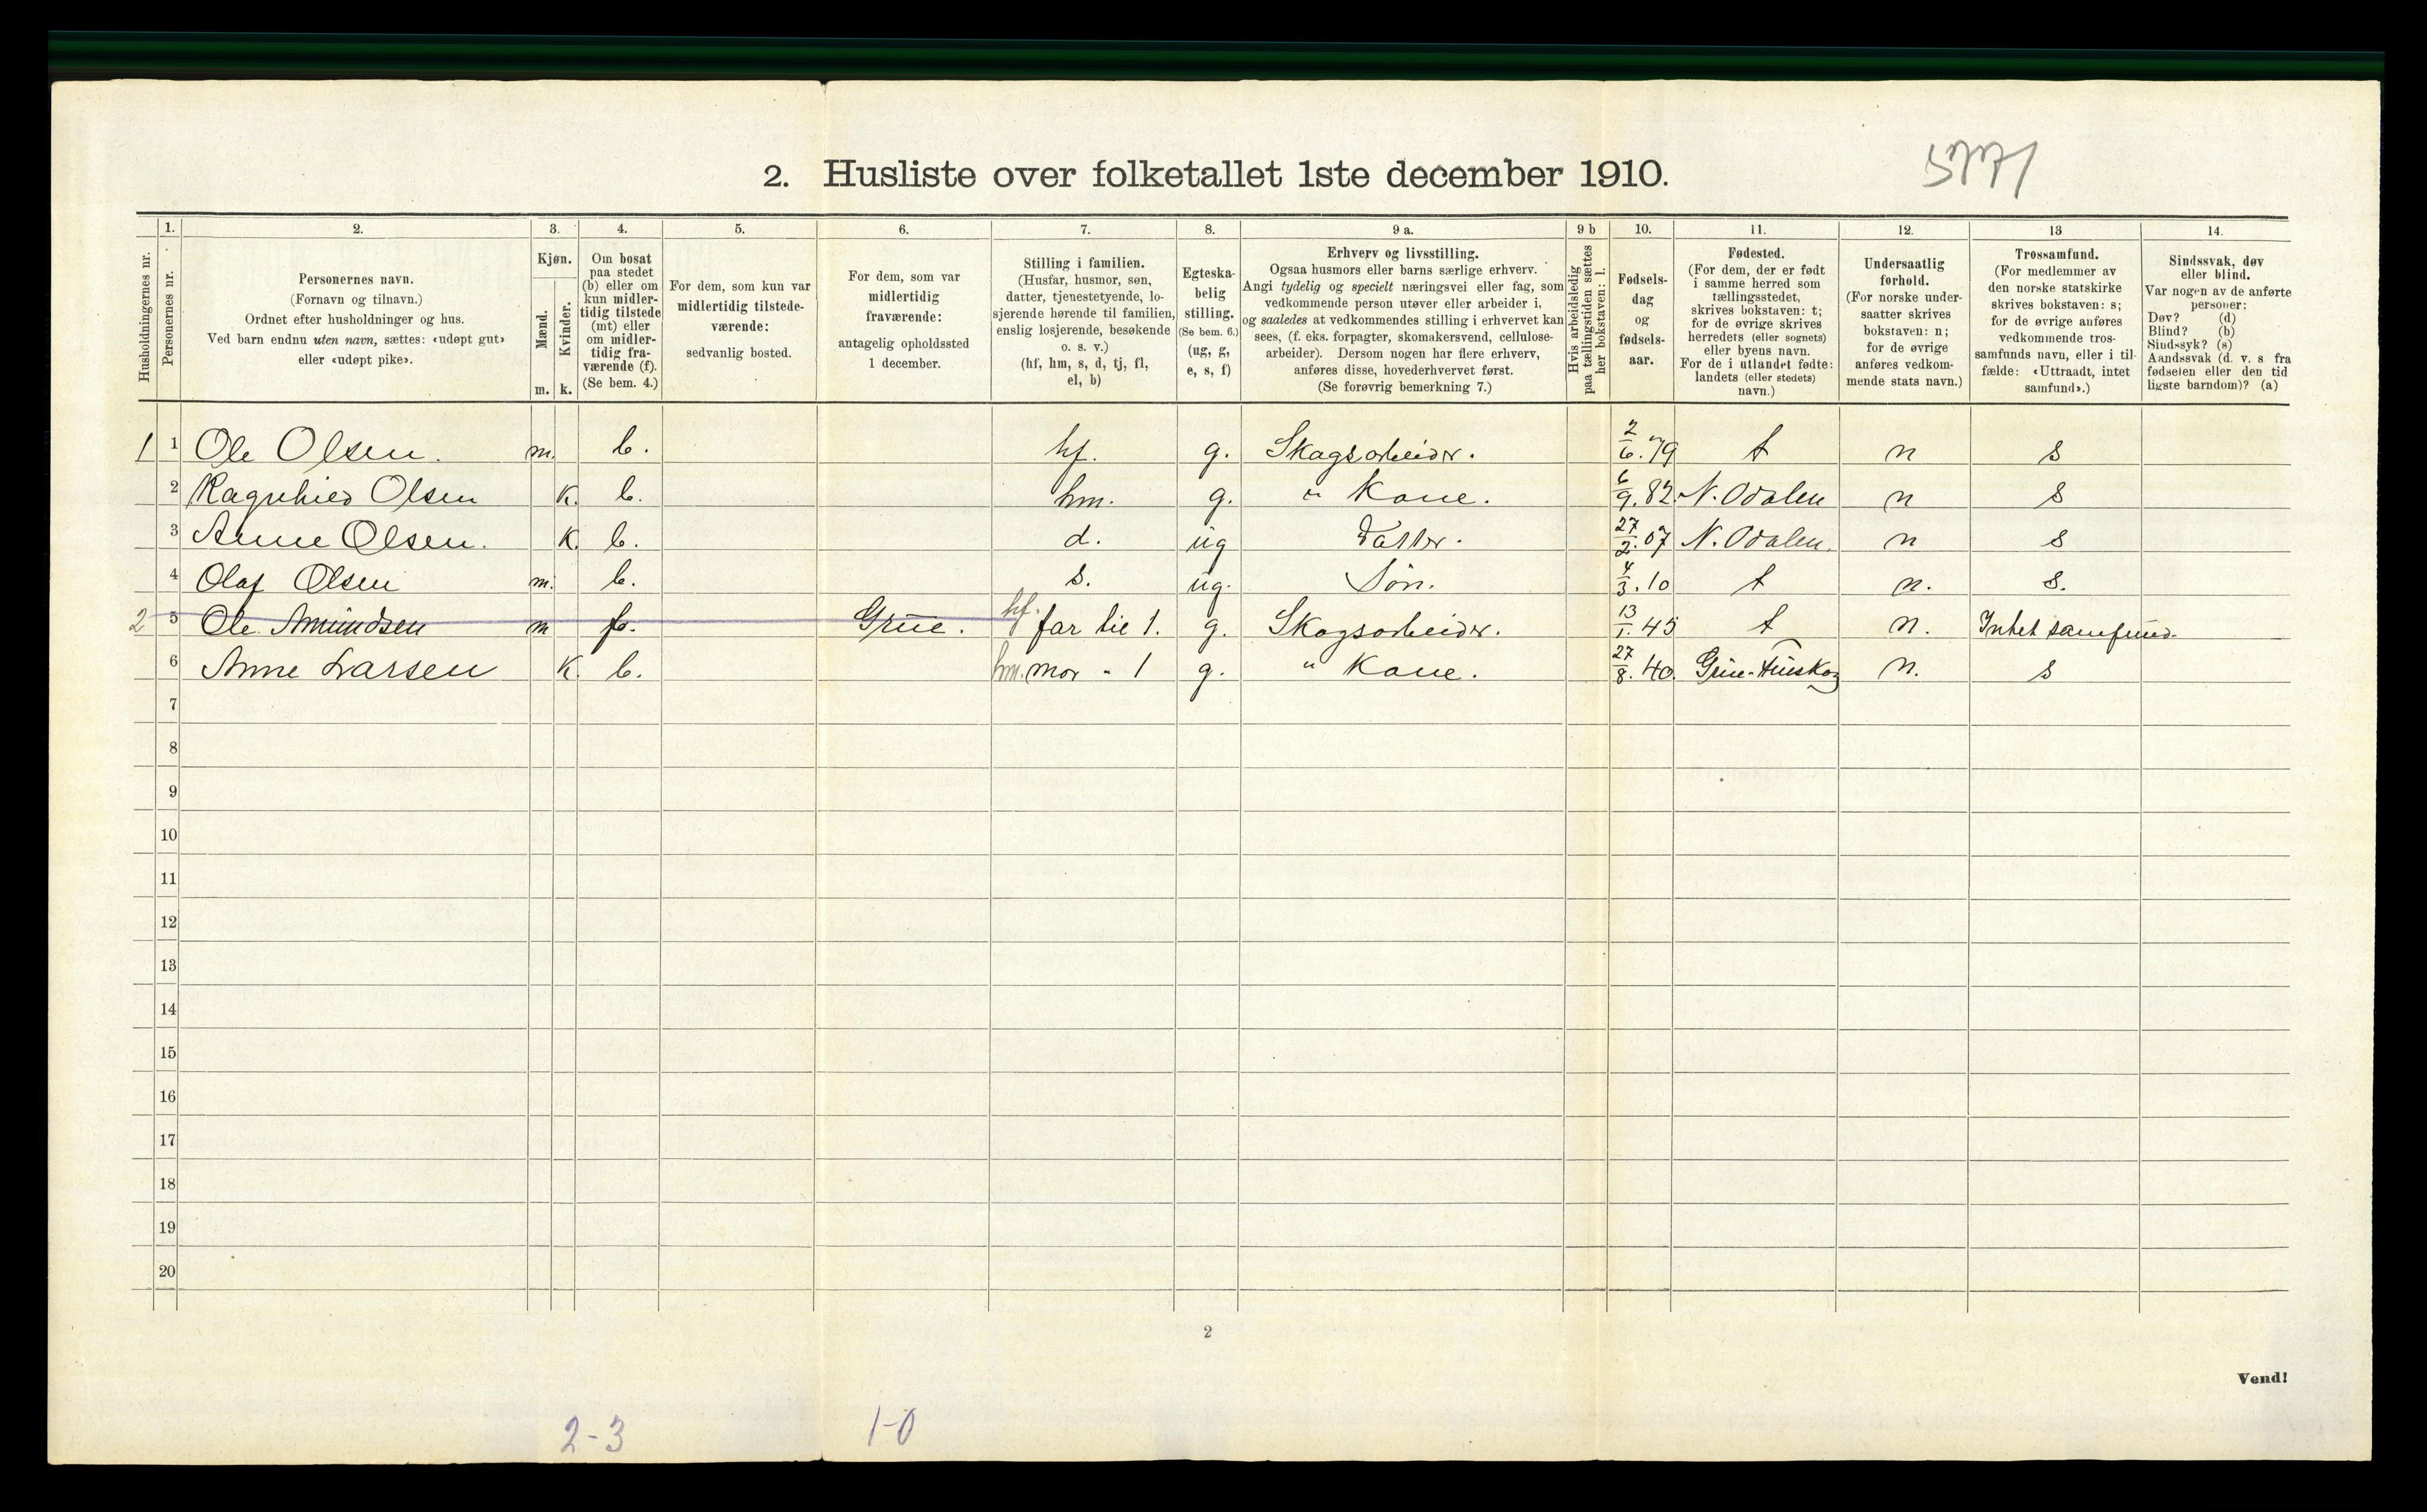 2. Husliste over folketallet 1ste december 1910.
5771
Husholdningernes nr.
1.
Personernes nr.
2.
Personernes navn.
(Fornavn og tilnavn.)
Ordnet efter husholdninger og hus.
Ved barn endnu uten navn, sættes: «udøpt gut»
eller «udøpt pike».
3.
Kjøn.
Mænd.
m.
Kvinder.
k.
4.
Om bosat
paa stedet
(b) eller om
kun midler-
tidig tilstede
(mt) eller
om midler-
tidig fra-
værende (f).
(Se bem. 4.)
5.
For dem, som kun var
midlertidig tilstede-
værende:
sedvanlig bosted.
6.
For dem, som var
midlertidig
fraværende:
antagelig opholdssted
1 december.
7.
Stilling i familien.
(Husfar, husmor, søn,
datter, tjenestetyende, lo-
sjerende hørende til familien,
enslig losjerende, besøkende
o. s. v.)
(hf, hm, s, d, tj, fl,
el, b)
8.
Egteska-
belig
stilling.
(Se bem. 6.)
(ug, g,
e, s, f)
9 a.
Erhverv og livsstilling.
Ogsaa husmors eller barns særlige erhverv.
Angi tydelig og specielt næringsvei eller fag, som
vedkommende person utøver eller arbeider i,
og saaledes at vedkommendes stilling i erhvervet kan
sees, (f. eks. forpagter, skomakersvend, cellulose-
arbeider). Dersom nogen har flere erhverv,
anføres disse, hovederhvervet først.
(Se forøvrig bemerkning 7.)
9 b
Hvis arbeidsledig
paa tællingstiden sættes
her bokstaven: l.
10.
Fødsels-
dag
og
fødsels-
aar.
11.
Fødested.
(For dem, der er født
i samme herred som
tællingsstedet,
skrives bokstaven: t;
for de øvrige skrives
herredets (eller sognets)
eller byens navn.
For de i utlandet fødte:
landets (eller stedets)
navn.)
12.
Undersaatlig
forhold.
(For norske under-
saatter skrives
bokstaven: n;
for de øvrige
anføres vedkom-
mende stats navn.)
13
Trossamfund.
(For medlemmer av
den norske statskirke
skrives bokstaven: s;
for de øvrige anføres
vedkommende tros-
samfunds navn, eller i til-
fælde: «Uttraadt, intet
samfund».)
14.
Sindssvak, døv
eller blind.
Var nogen av de anførte
personer:
Døv? (d)
Blind? (b)
Sindssyk? (s)
Aandssvak (d. v. s. fra
fødselen eller den tid
ligste barndom)? (a)
1 1 Ole Olsen. m. b. hf. g. Skogsarbeider. 2/6.79 t n s
2 Ragnhild Olsen k. b. hm. g. " Kone. 6/9.82 N. Odalen n s
3 Anne Olsen. k. b. d. ug Datter. 27/2.07 N. Odalen. n s
4 Olaf Olsen m. b. s. ug. Søn. 4/3.10 t n. s.
2 5 Ole Amundsen m f. Grue. hf. far til 1. g. Skogsarbeider. 13/1.45 t n. Intet samfund.
6 Anne Larsen k. b. hm. mor " 1 g. " Kone. 27/8.40. Grue-Finskog n. s
7
8
9
10
11
12
13
14
15
16
17
18
19
20
2
Vend!
2-3 1-0